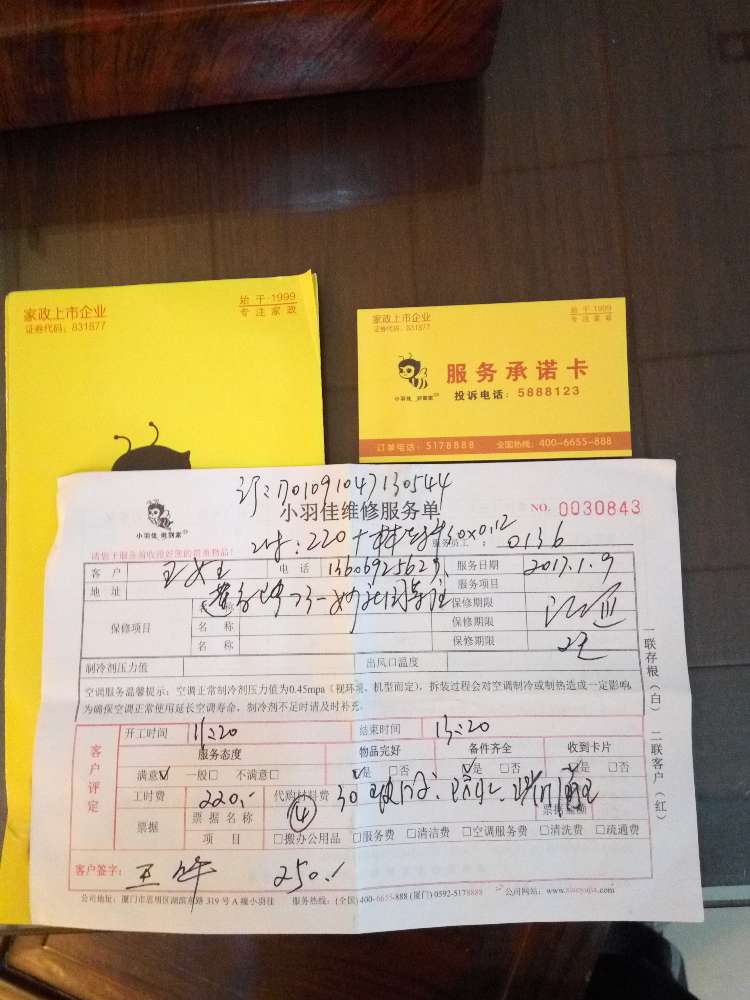 家政上市企业
证券代码：831877
始于·1999
专注家政
家政上市企业
证券代码：831877
始于·1999
专注家政
小羽佳 到到家
服务承诺卡
投诉电话：5888123
订单电话：5178888 全国热线：400-6655-888
1701091047130544
小羽佳维修服务单
NO. 0030843
小羽佳
请您于服务前收理好您的贵重物品！
220 + 30×0.12
服务员工：0136
客户 王女士 电话 13606925629 服务日期 2017.1.9
地址 服务项目
保修项目 名称 保修期限
名称 保修期限
名称 保修期限
制冷剂压力值 出风口温度
空调服务温馨提示：空调正常制冷剂压力值为0.45mpa（视环境、机型而定），拆装过程会对空调制冷或制热造成一定影响，
为确保空调正常使用延长空调寿命，制冷剂不足时请及时补充。
一联存根（白） 二联客户（红）
客户评定
开工时间 11:20 结束时间 13:20
服务态度 物品完好 备件齐全 收到卡片
满意☑ 一般□ 不满意□ ☑是 □否 ☑是 □否 ☑是 □否
工时费 220.- 代购材料费 30
票据 票据名称 ④ 票据金额
项目 □搬办公用品 □服务费 □清洁费 □空调服务费 □清洗费 □疏通费
客户签字：王 250.-
公司地址：厦门市思明区湖滨东路319号A幢小羽佳 服务热线：(全国)400-6655-888 (厦门)0592-5178888 公司网站：www.xiaoyujia.com